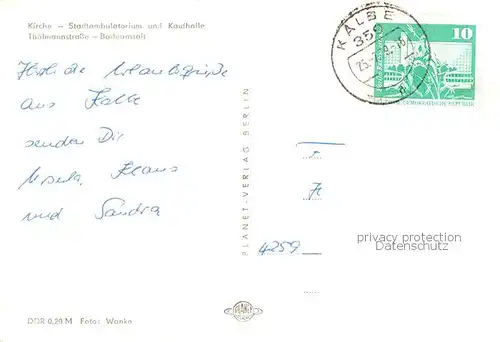 Kirche – Stadtambulatorium und Kaufhalle
Thälmannstraße – Badeanstalt
KALBE
359
10
DEMOKRATISCHE REPUBLIK
Herzliche Urlaubsgrüße
aus Kalbe
senden Dir
Ursula, Klaus
und Sandra
PLANET-VERLAG BERLIN
4259
privacy protection
Datenschutz
DDR 0,20 M Foto: Wanke